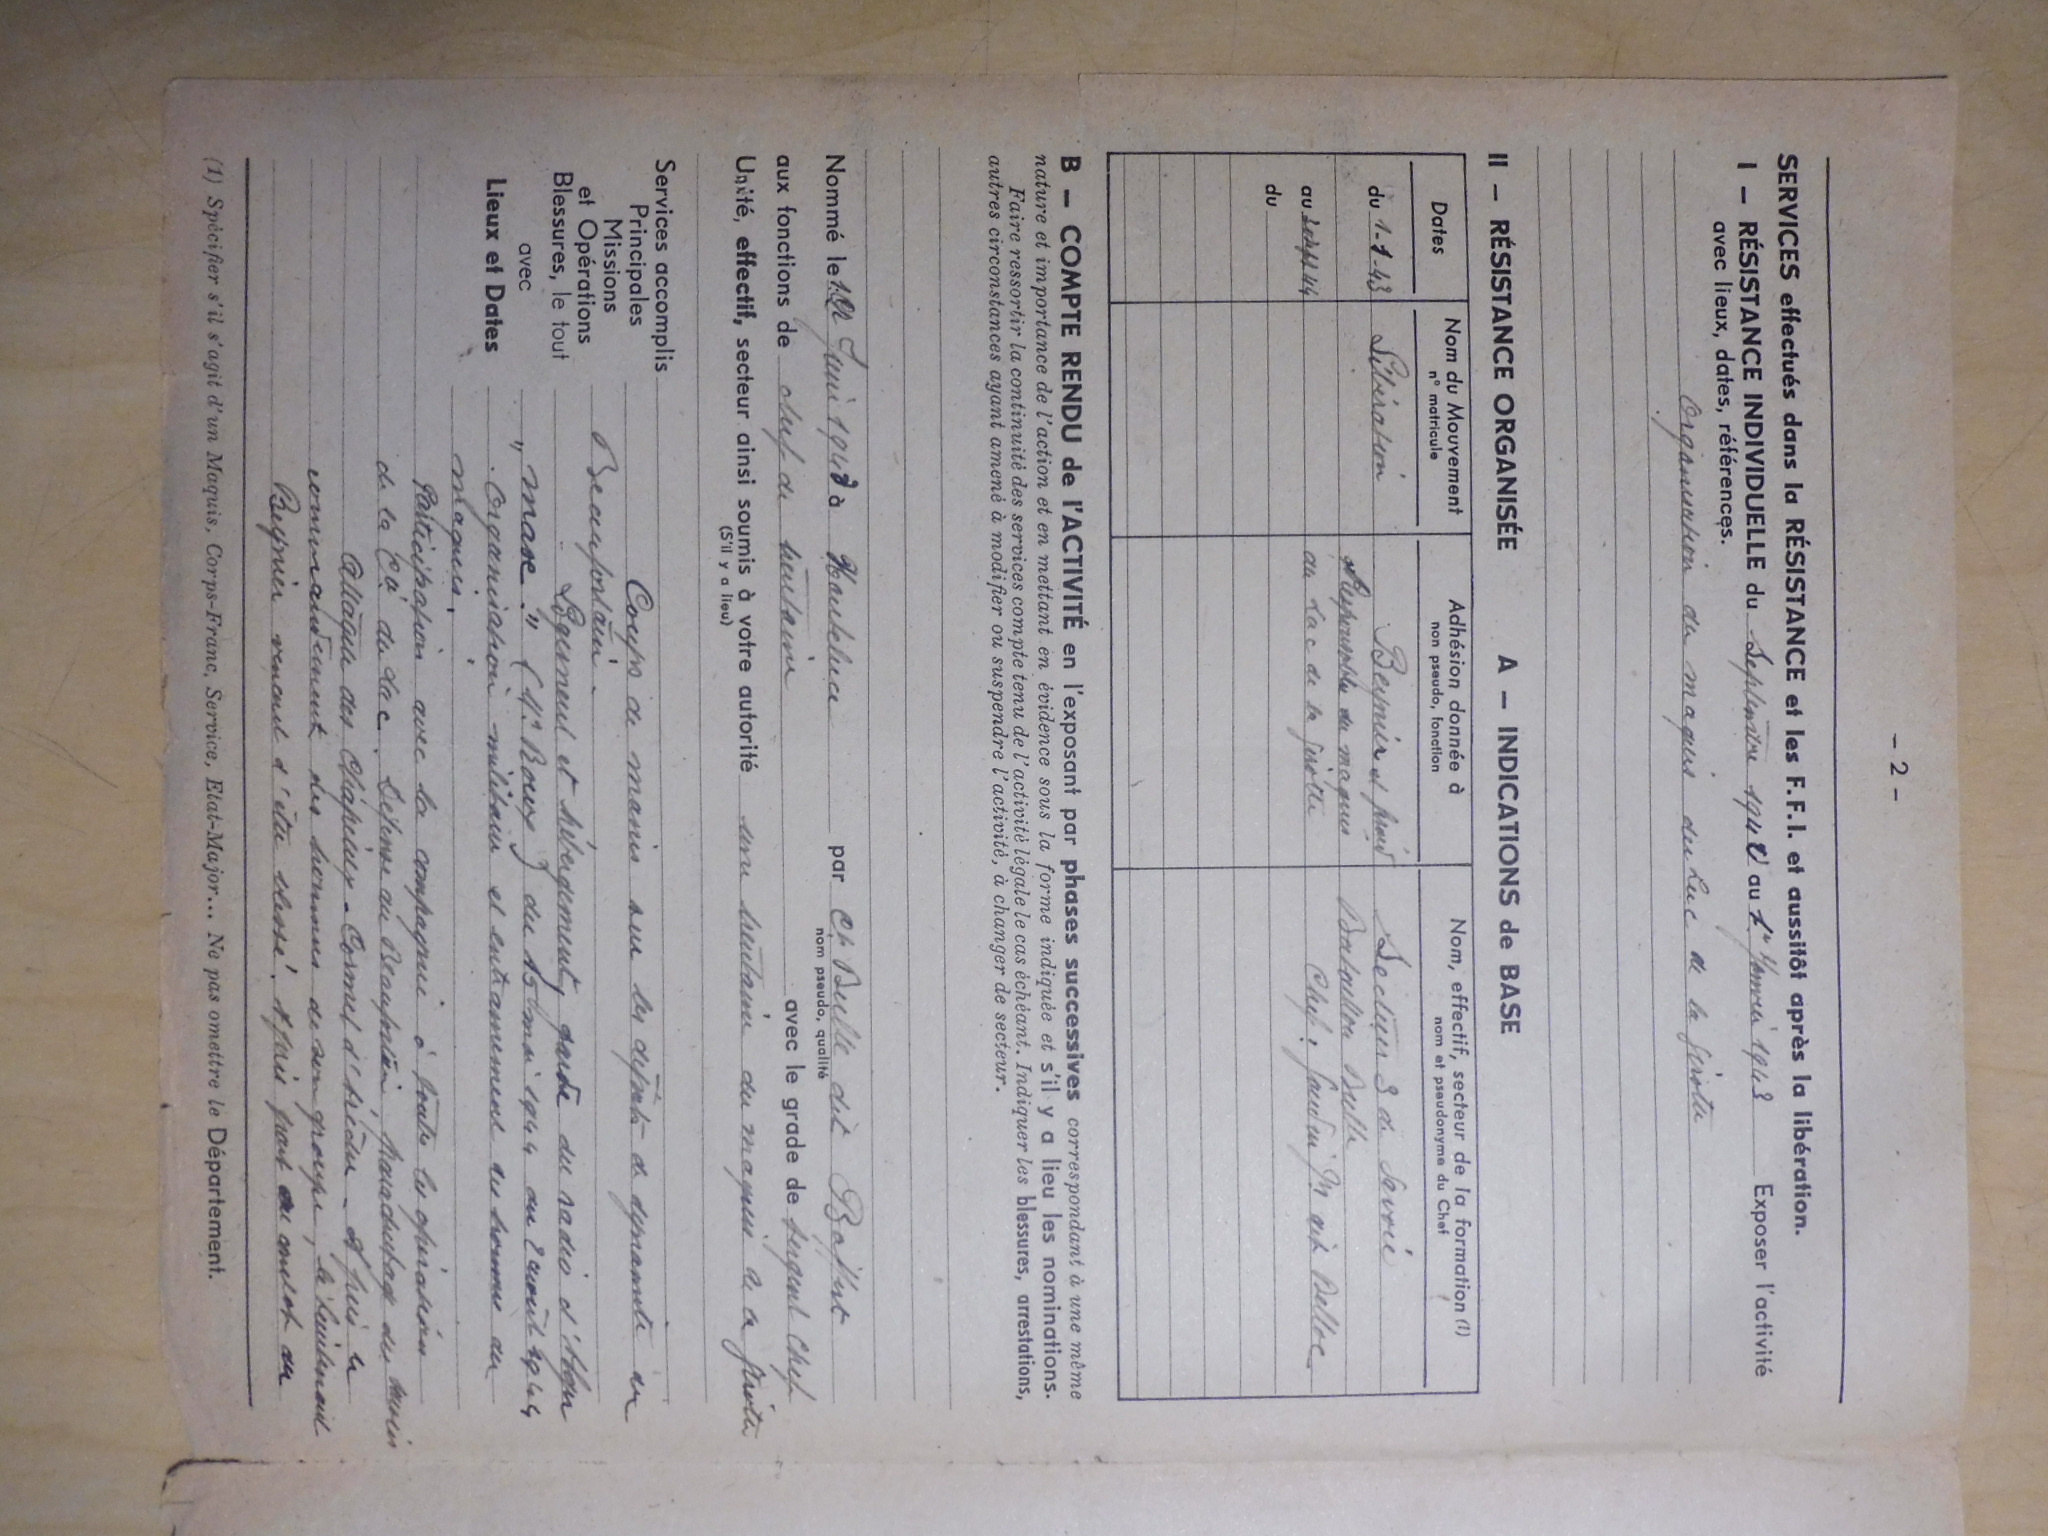 - 2 -
SERVICES effectués dans la RÉSISTANCE et les F.F.I. et aussitôt après la libération.
I — RÉSISTANCE INDIVIDUELLE du Septembre 1942 au 1er Janvier 1943 Exposer l'activité
avec lieux, dates, références.
Organisation du maquis du Lac de la Girotte
II — RÉSISTANCE ORGANISÉE A — INDICATIONS de BASE
Dates
Nom du Mouvement
n° matricule
Adhésion donnée à
nom pseudo, fonction
Nom, effectif, secteur de la formation (1)
nom et pseudonyme du Chef
du 1-1-43 Libération Beynier et
Secteur 3 de Savoie
au 44 Responsable du maquis Bataillon Bulle
au Lac de la Girotte Chef.
du
B — COMPTE RENDU de l'ACTIVITÉ en l'exposant par phases successives correspondant à une même
nature et importance de l'action et en mettant en évidence sous la forme indiquée et s'il y a lieu les nominations.
Faire ressortir la continuité des services compte tenu de l'activité légale le cas échéant. Indiquer les blessures, arrestations,
autres circonstances ayant amené à modifier ou suspendre l'activité, à changer de secteur.
Nommé le Juin 1943 à Hauteluce par Ct Bulle dit Baptist
nom pseudo, qualité
aux fonctions de chef de trentaine avec le grade de sergent chef
Unité, effectif, secteur ainsi soumis à votre autorité une trentaine du maquis de la Girotte
(S'il y a lieu)
Services accomplis
Principales
Missions
et Opérations
Blessures, le tout
avec
Lieux et Dates
Coups de mains sur les dépôts de dynamite en
Beaufortain.
Logement et hébergement, garde du radio d'Alger
"marc" (Mr Rouxy) du 15 mai 1944 au 2 août 1944
Organisation militaire et entrainement des hommes du
maquis.
Participation avec la compagnie à toutes les opérations
de la Cie du Lac. Défense du Beaufortain Parachutage des Saisies
Attaque des Chapieux - Cormet d'Arèches - Puis le
commandement des hommes de son groupe, le lieutenant
Beynier venant d'être blessé. Puis front
(1) Spécifier s'il s'agit d'un Maquis, Corps-Franc, Service, Etat-Major... Ne pas omettre le Département.